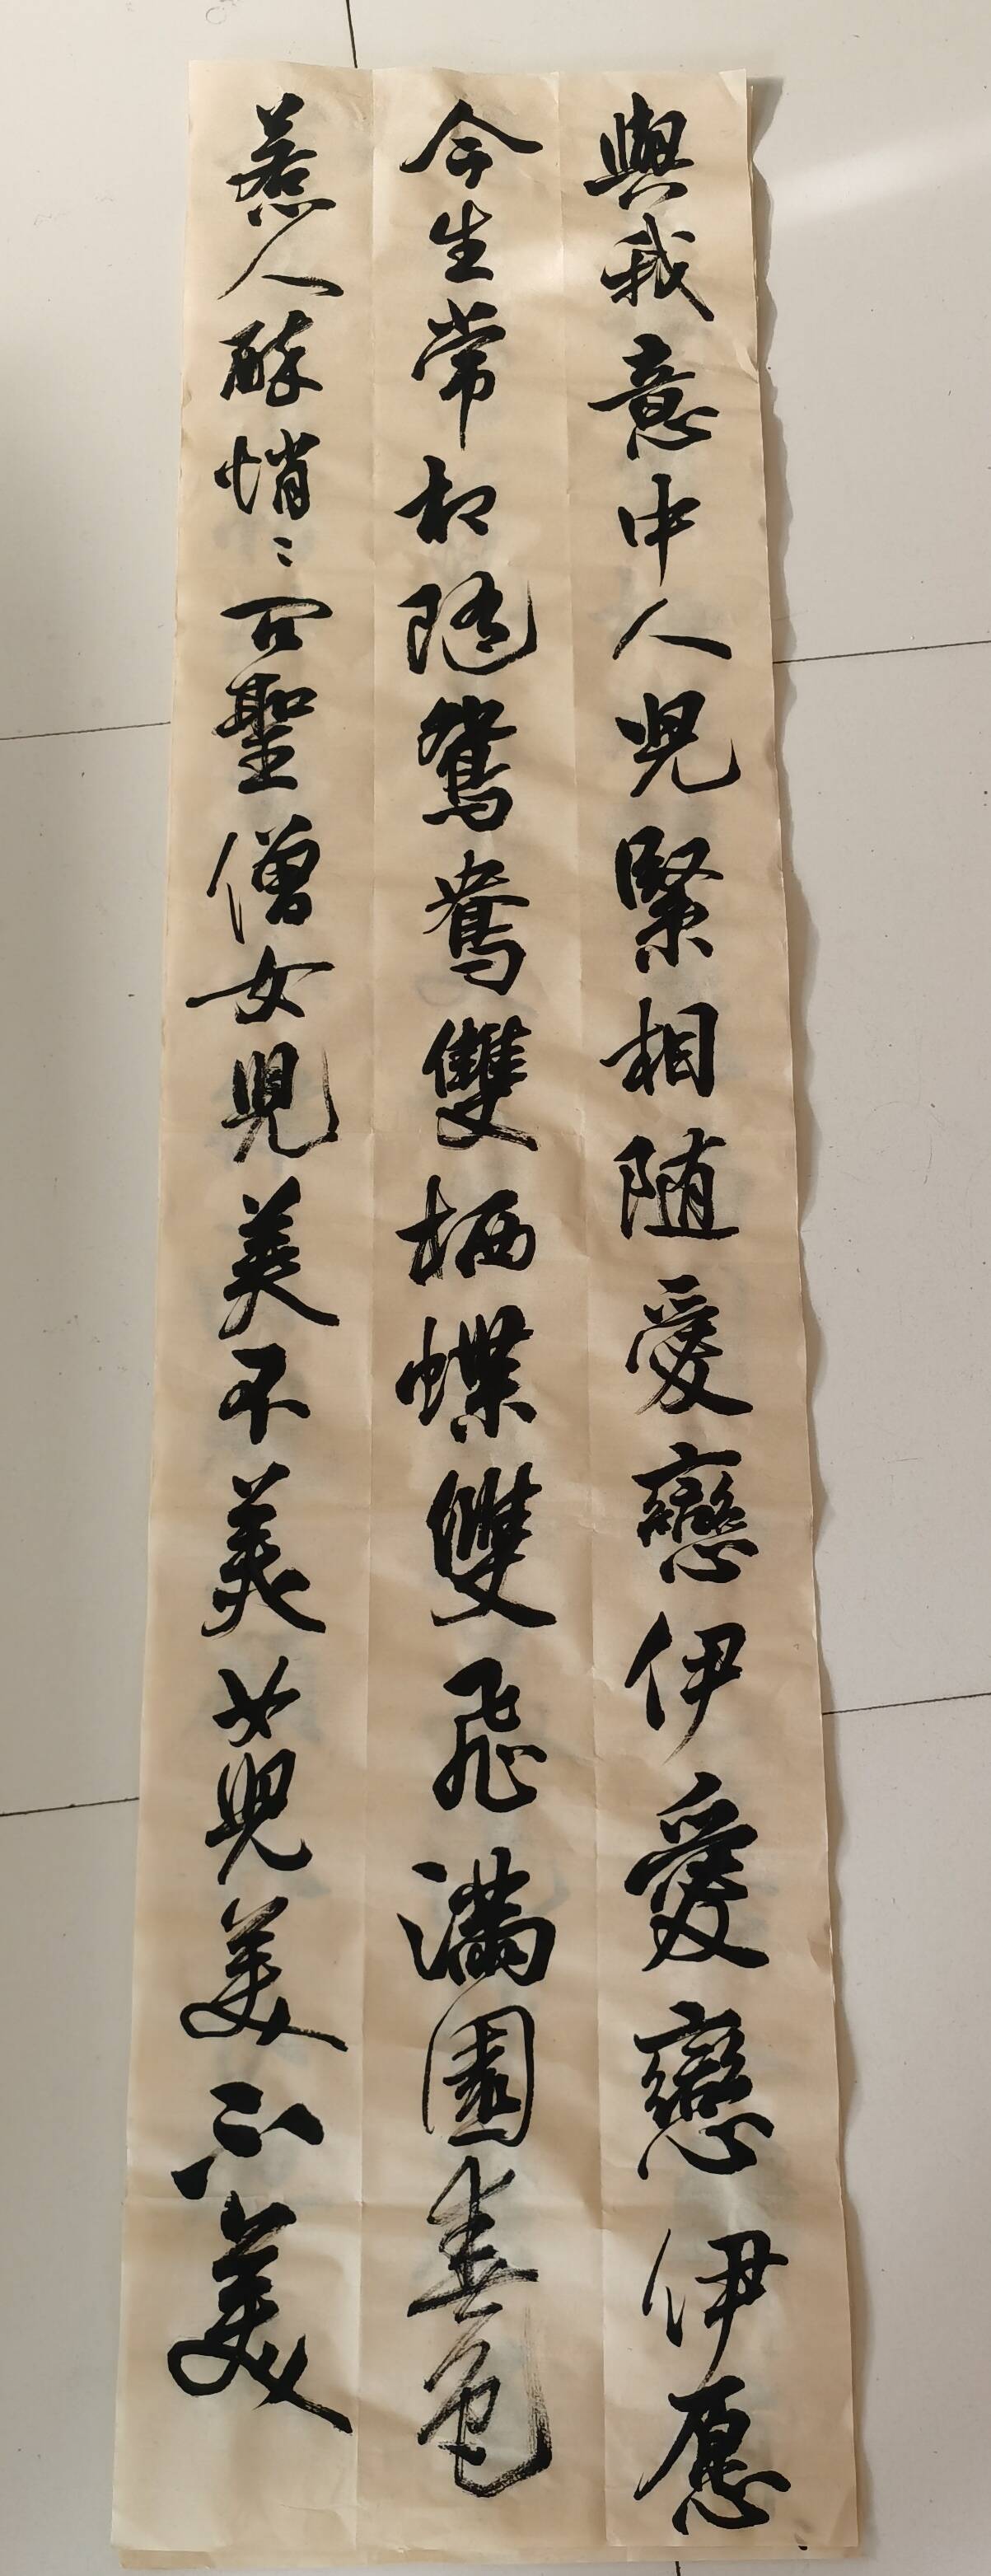 與我意中人兒緊相随愛戀伊愛戀伊愿
今生常相隨鴛鴦雙栖蝶雙飛滿園春色
惹人醉悄〻问聖僧女兒美不美女兒美不美